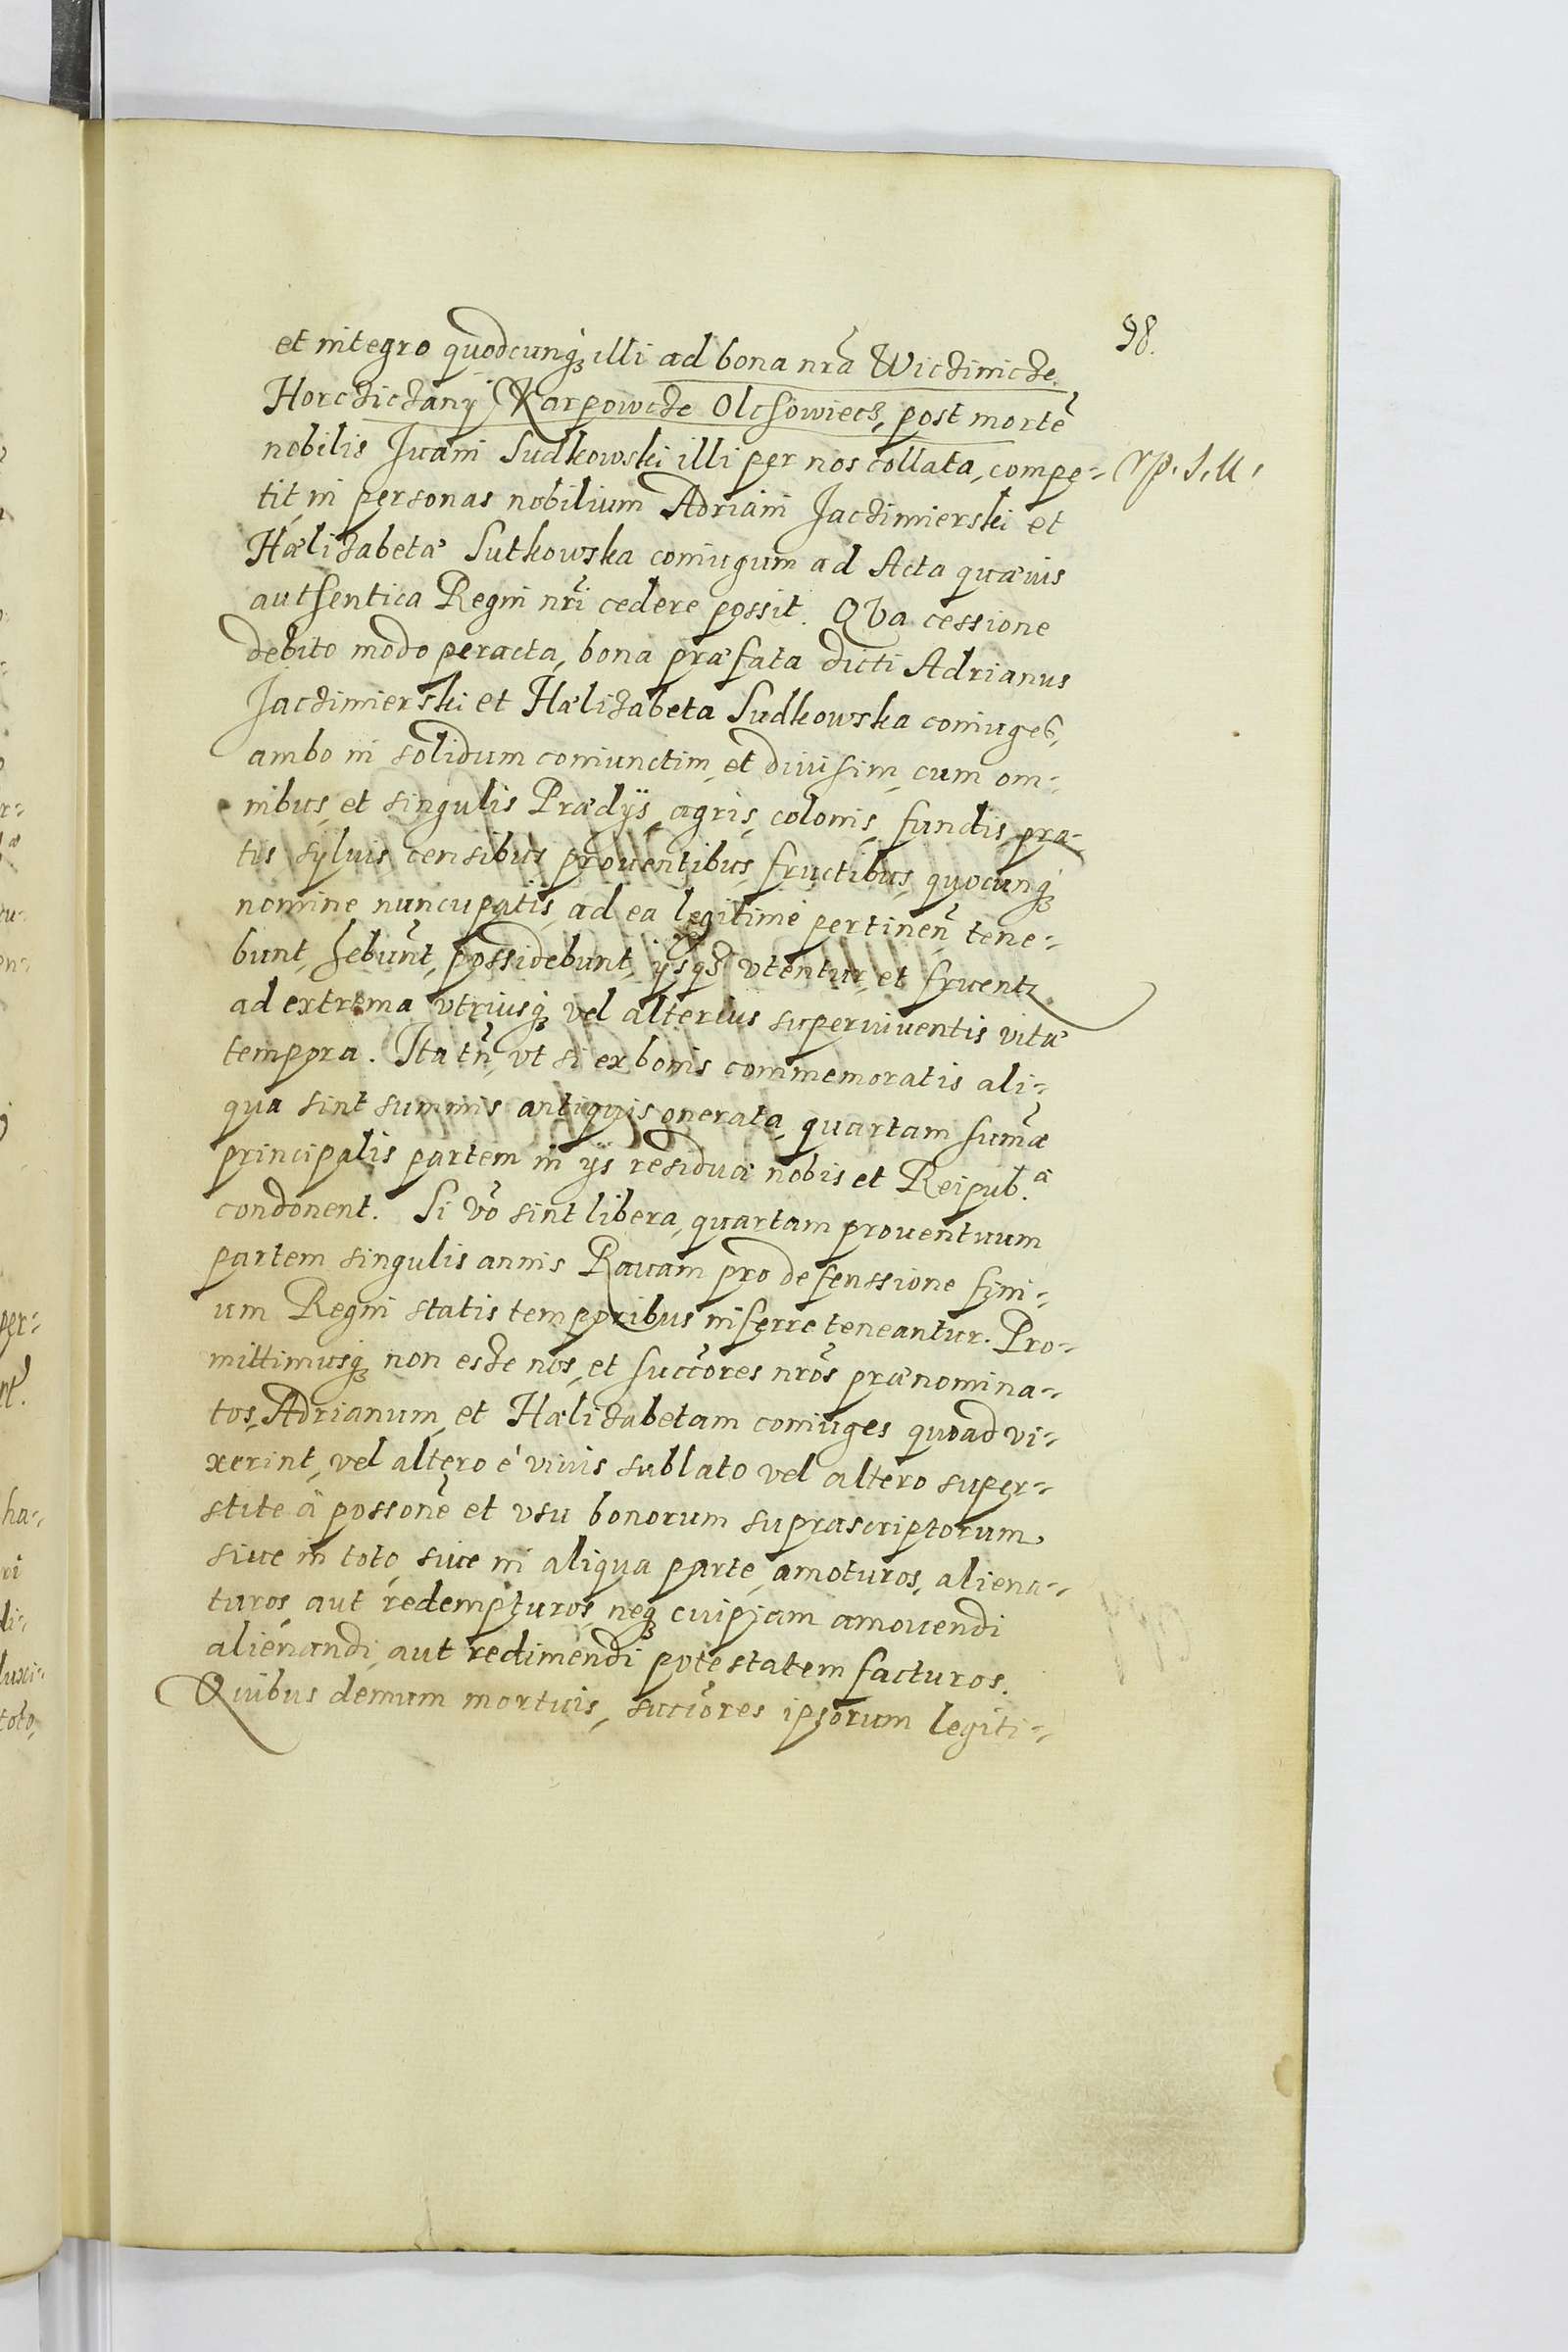 98.
et integro quodcunq₃ illi ad bona nrã Wiczinicze
Horcziczany Karpowcze Olchowiecz, post mortẽ
nobilis Iwani Sudkowski illi per nos collata, compe-
tit, in personas nobilium Adriani Jaczimierski et
Hælizabetæ Sutkowska coniugum ad Acta quævis
authentica Regni nr̃i cedere possit. Qua cessione
debito modo peracta, bona præfata dicti Adrianus
Jaczimierski et Hælizabeta Sudkowska coniuges,
ambo in solidum coniunctim, et diuisim, cum om-
nibus, et singulis Prædÿs, agris, colonis, fundis, pra-
tis sÿluis censibus prouentibus, fructibus, quocunq₃
nomine nuncupatis, ad ea legitimè pertineñ tene-
bunt, hebunt, possidebunt, ÿsq₃ vtentur, et fruentr
ad extrema vtriusq₃ vel alterius superuiuentis vitæ
tempora. Ita tñ, vt si ex bonis commemoratis ali-
qua sint summis antiquis onerata, quartam sum̃æ
principalis partem in ÿs residuæ nobis et Reipub.æ
condonent. Si võ sint libera, quartam prouentuum
partem singulis annis Rauam pro defenssione fini-
um Regni statis temporibus inferre teneantur. Pro-
mittimusq₃ non esze nos, et succõres nrõs prænomina-
tos, Adrianum, et Hælizabetam coniuges quoad vi-
xerint, vel altero è viuis sublato vel altero super-
stite à possonẽ et vsu bonorum suprascriptorum
siue in toto, siue in aliqua parte, amoturos, aliena-
turos, aut redempturos, neq₃ cuipiam amouendi
alienandi, aut redimendi potestatem facturos.
Quibus demum mortuis, succõres ipsorum legiti-